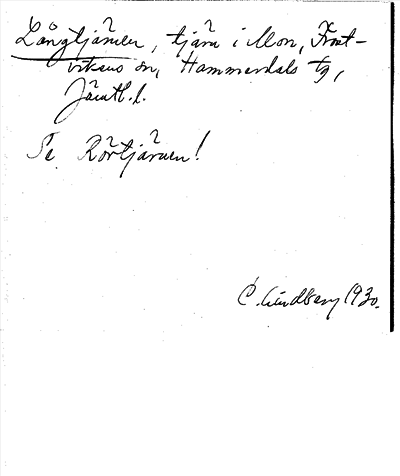 Långtjärnen, tjärn i Mon, Frost-
vikens sn, Hammerdals tg,
Jämtl. l.
Se Rörtjärnen!
C. Lindberg 1930.